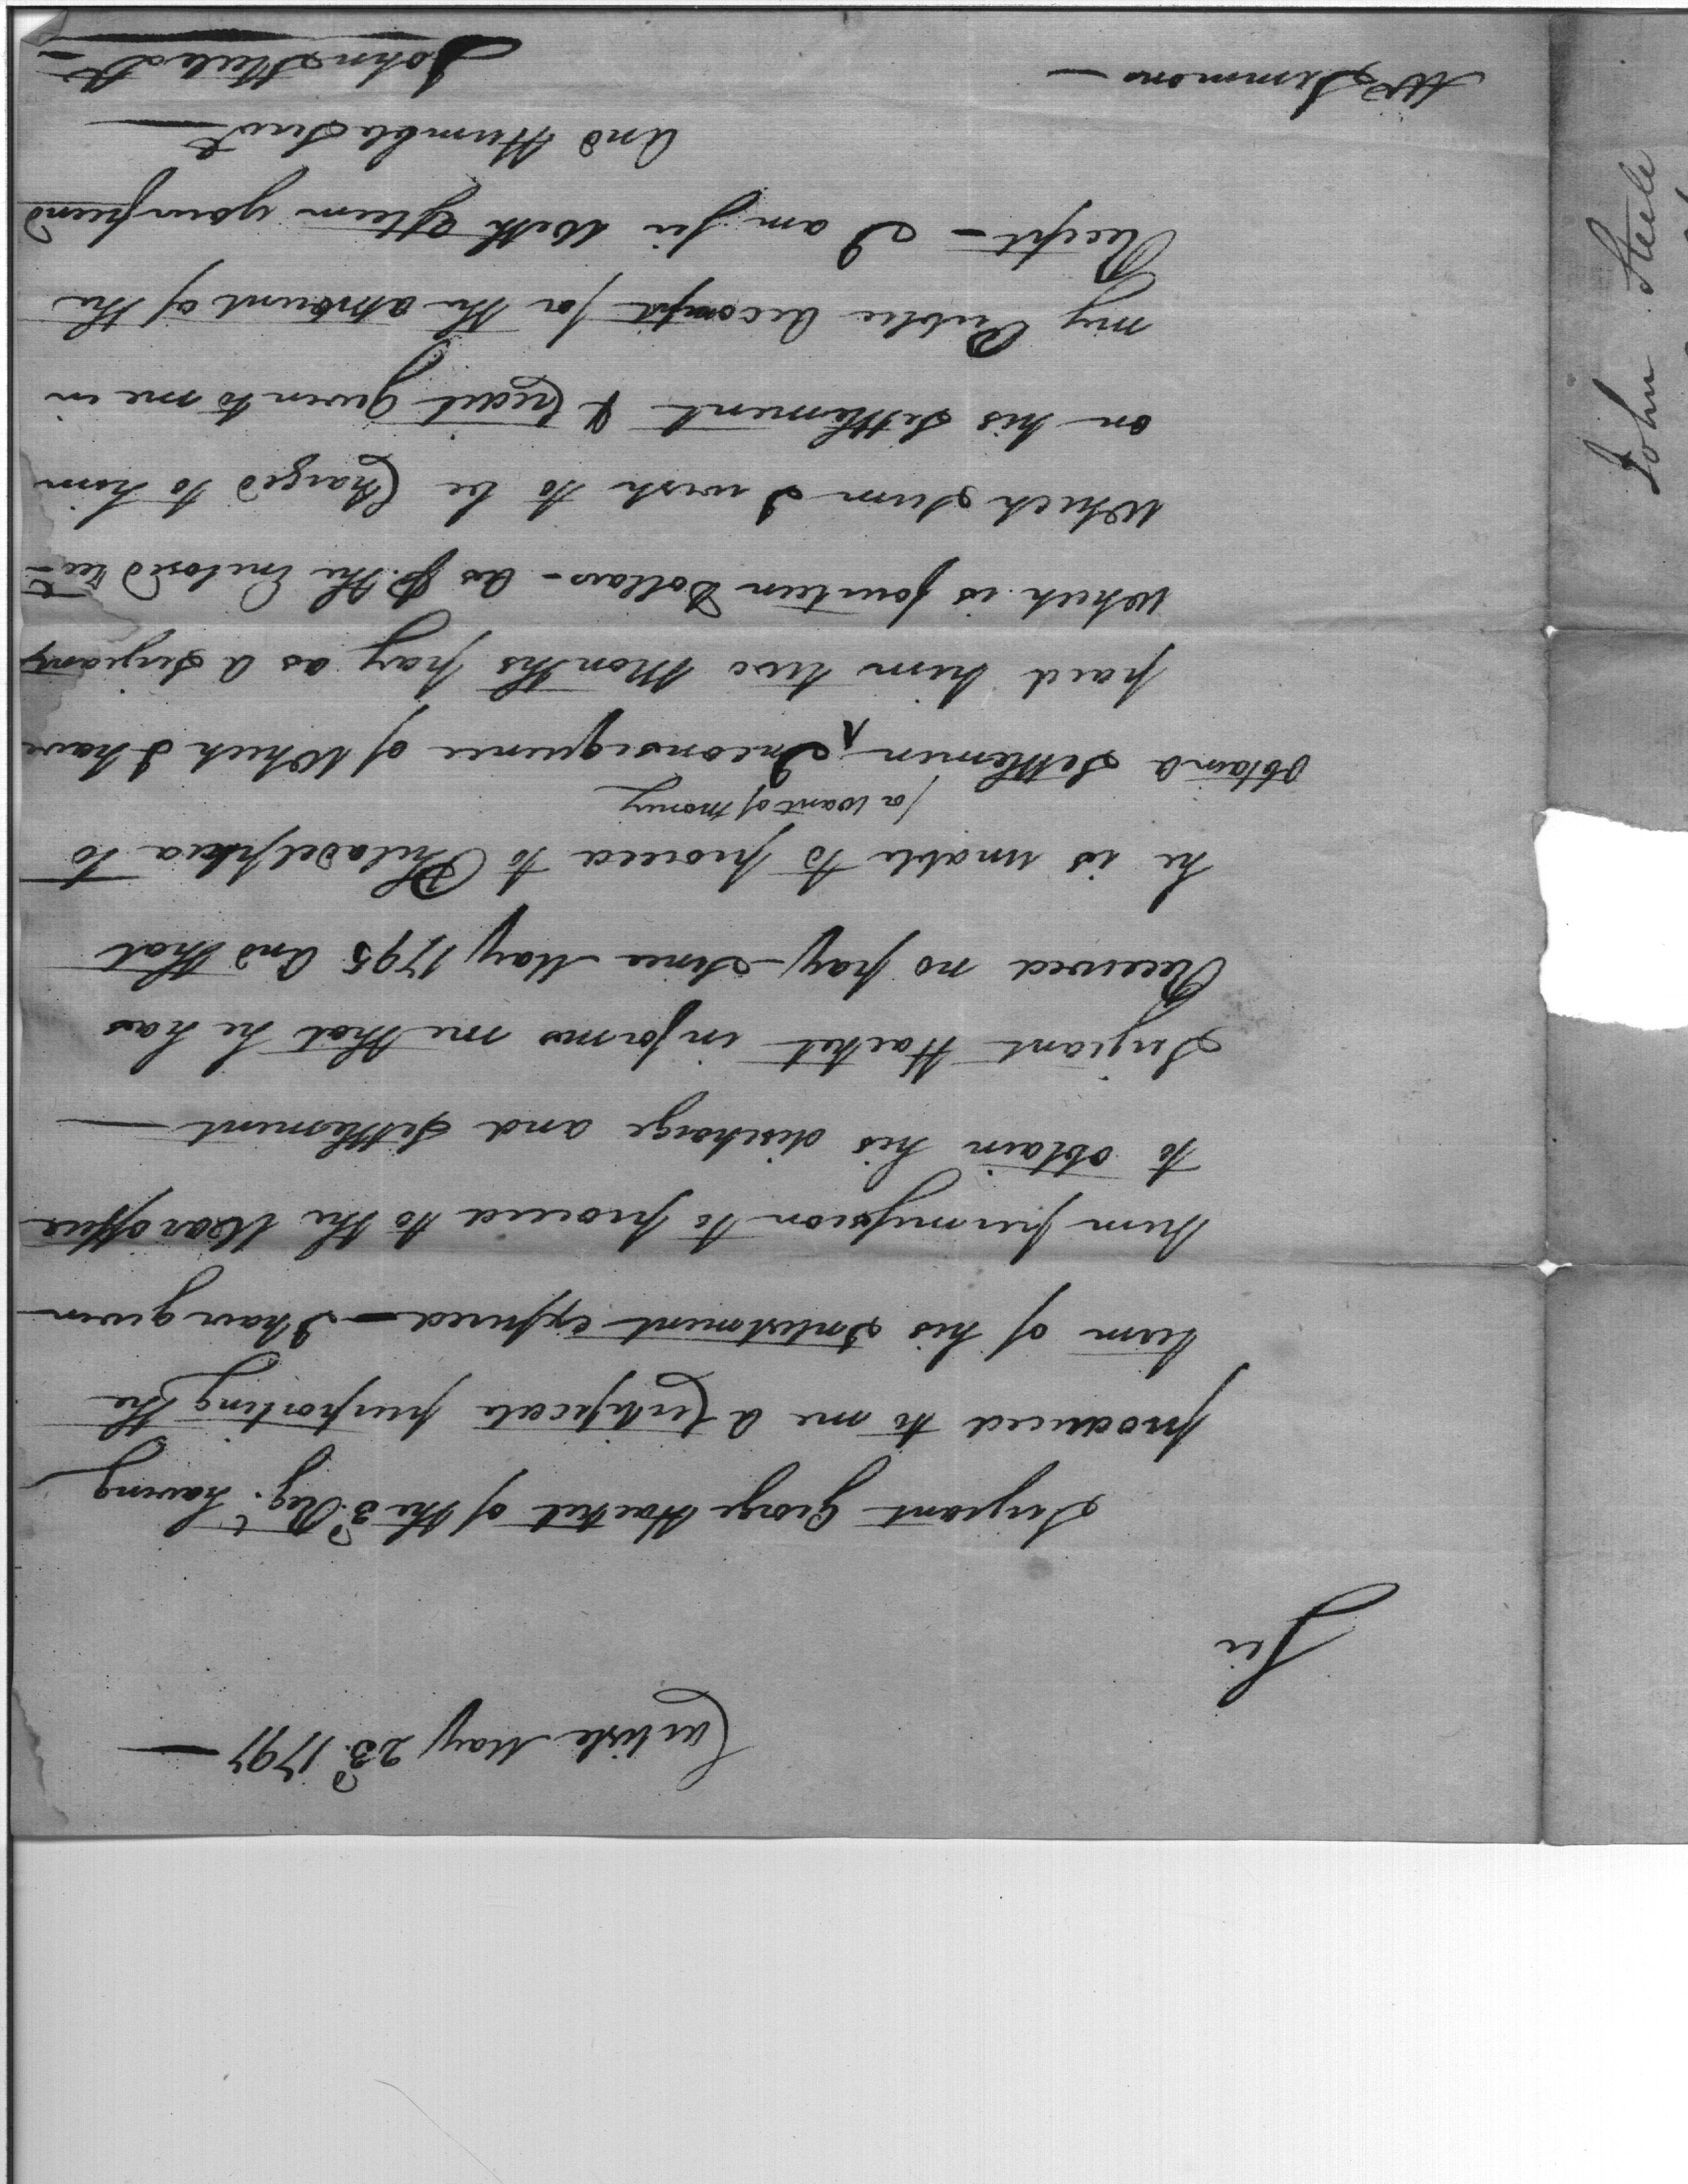 Carlisle May 23.d 1797 —
Sir
Serjeant George Hacket of the 3.d Reg.t having
produced to me a Certificate purporting the
term of his Inlistment expired — I have given
him permission to proceed to the War office
to obtain his discharge and Settlement —
Serjeant Hacket informs me that he has
Received no pay since May 1795 And that
he is unable to proceed to Philadelphia to
/a want of money
obtain a Settlemen ^ Inconsequence of Which I have
paid him two Months pay as a Serjeant
Which is fourteen Dollars - as P. the Enclosed rec.t
Which Sum I wish to be Charged to him
on his Settlement & Credit given to me in
my Public Accompt for the amount of the
Receipt — I am Sir With Esteem your friend
And Humble Serv.t
W Simmons —
John Steele
John Steele